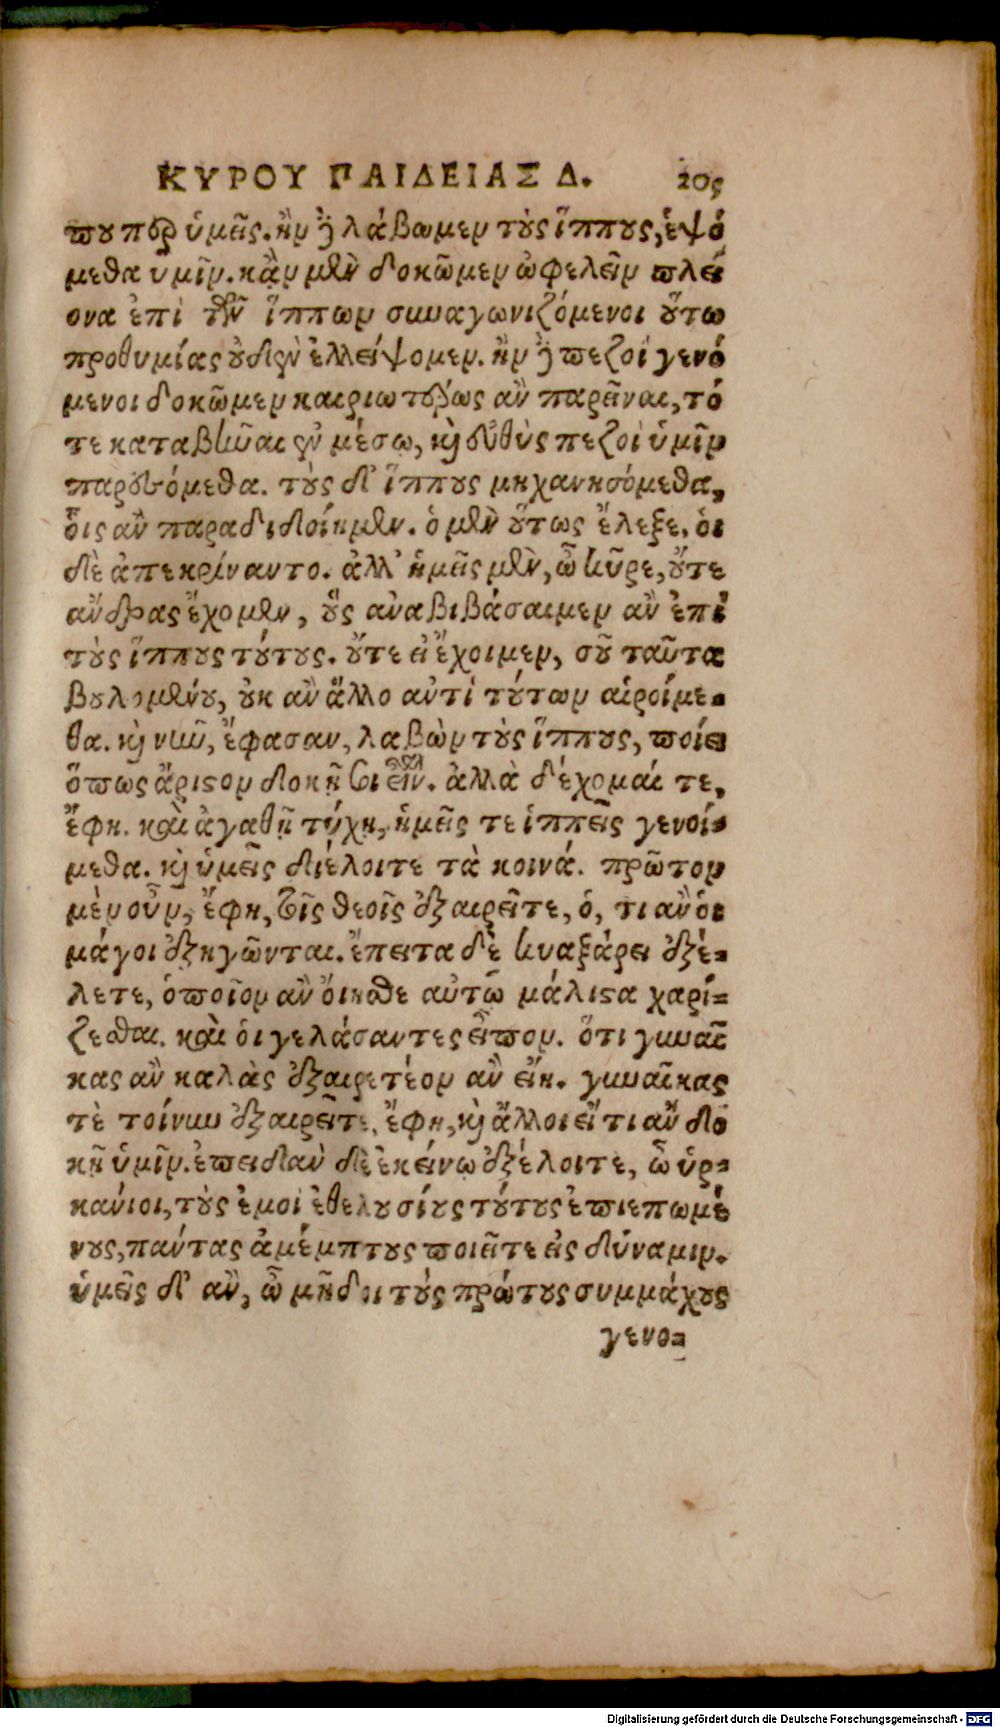 ΚΥΡΟΥ ΠΑΙΔΕΙΑΣ Δ. 205
που περ ὑμεῖς. ἢν δὲ λάβωμεν τοὺς ἵππους, ἑψό
μεθα υμῖν. κἂν μὲν δοκῶμεν ὠφελεῖν πλεί
ονα ἐπὶ τῶν ἵππων συναγωνιζόμενοι οὕτω
προθυμίας οὐδὲν ἐλλείψομεν. ἢν δὲ πεζοὶ γενό
μενοι δοκῶμεν καιριωτέρως ἂν παρεῖναι, τό
τε καταβῆναι ἐν μέσω, καὶ εὐθὺς πεζοὶ ὑμῖν
παρεσόμεθα. τοὺς δ' ἵππους μηχανησόμεθα,
οἷς ἂν παραδιδοίημεν. ὁ μὲν οὕτως ἔλεξε. οἱ
δὲ ἀπεκρίναντο. ἀλλ' ἡμεῖς μὲν, ὦ κῦρε, οὔτε
ἄνδρας ἔχομεν, οὓς ἀναβιβάσαιμεν ἂν ἐπὶ
τοὺς ἵππους τούτους. οὔτε εἰ ἔχοιμεν, σοῦ ταῦτα
βουλομένου, οὐκ ἂν ἄλλο ἀντὶ τούτων αἱροίμε-
θα. καὶ νῦν, ἔφασαν, λαβὼν τοὺς ἵππους, ποίει
ὅπως ἄριστον δοκῇ σοι εἶναι. ἀλλὰ δέχομαί τε,
ἔφη. καὶ ἀγαθῇ τύχῃ, ἡμεῖς τε ἱππεῖς γενοί-
μεθα. καὶ ὑμεῖς διέλοιτε τὰ κοινά. πρῶτον
μὲν οὖν, ἔφη, τοῖς θεοῖς ἐξαιρεῖτε, ὅ, τι ἂν οἱ
μάγοι ἐξηγῶνται. ἔπειτα δὲ κυαξάρει ἐξέ-
λετε, ὁποῖον ἂν οἴησθε αὐτῷ μάλιστα χαρί-
ζεσθαι. καὶ οἱ γελάσαντες εἶπον. ὅτι γυναῖ
κας ἂν καλὰς ἐξαιρετέον ἂν εἴη. γυναῖκας
τὲ τοίνυν ἐξαιρεῖτε, ἔφη, καὶ ἄλλοι εἴ τι ἂν δο
κῇ ὑμῖν. ἐπειδὰν δὲ ἐκείνῳ ἐξέλοιτε, ὦ ὑρ-
κάνιοι, τοὺς ἐμοὶ ἐθελουσίους τούτους ἐπιεπωμέ
νους, πάντας ἀμέμπτους ποιεῖτε εἰς δύναμιν.
ὑμεῖς δ' ἂν, ὦ μῆδοι τοὺς πρώτους συμμάχους
γενο-
Digitalisierung gefördert durch die Deutsche Forschungsgemeinschaft - DFG